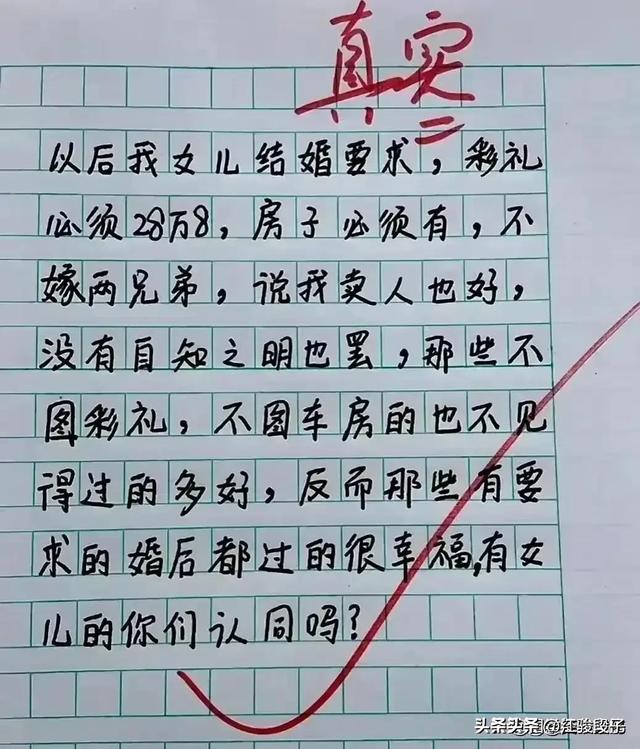 真实
以后我女儿结婚要求，彩礼
必须28万8，房子必须有，不
嫁两兄弟，说我卖人也好，
没有自知之明也罢，那些不
图彩礼，不图车房的也不见
得过的多好，反而那些有要
求的婚后都过的很幸福，有女
儿的你们认同吗？
头条头条@红骏段子